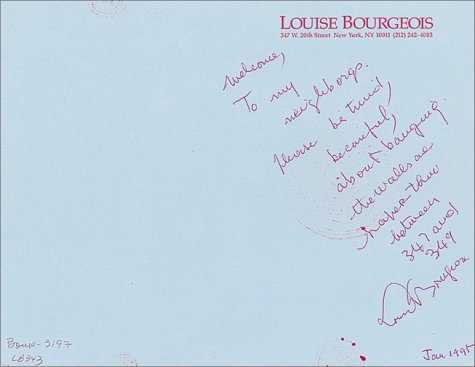 LOUISE BOURGEOIS
347 W. 20th Street New York, NY 10011 (212) 242-4083
Welcome,
To my
neighbors.
please be
becareful,
about banging.
the walls are
paper-thin
between
347 and
349
Louise Bourgeois
Jan 1995
Bour-3197
LB343